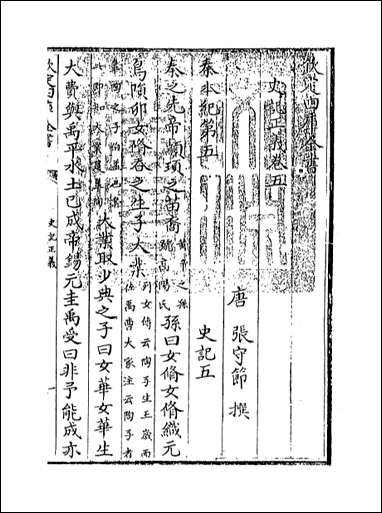 欽定四庫全書
史記正義卷五
唐 張守節 撰
秦本紀第五 史記五
秦之先帝顓頊之苗裔黄帝之孫號高陽氏孫曰女脩女脩織元
鳥隕卵女脩吞之生子大業列女傳云陶子生五歲而佐禹曹大家注云陶子者
皐陶之子伯益也 大業取少典之子曰女華女華生
大費與禹平水土已成帝錫元圭禹受曰非予能成亦
欽定四庫全書 史記正義